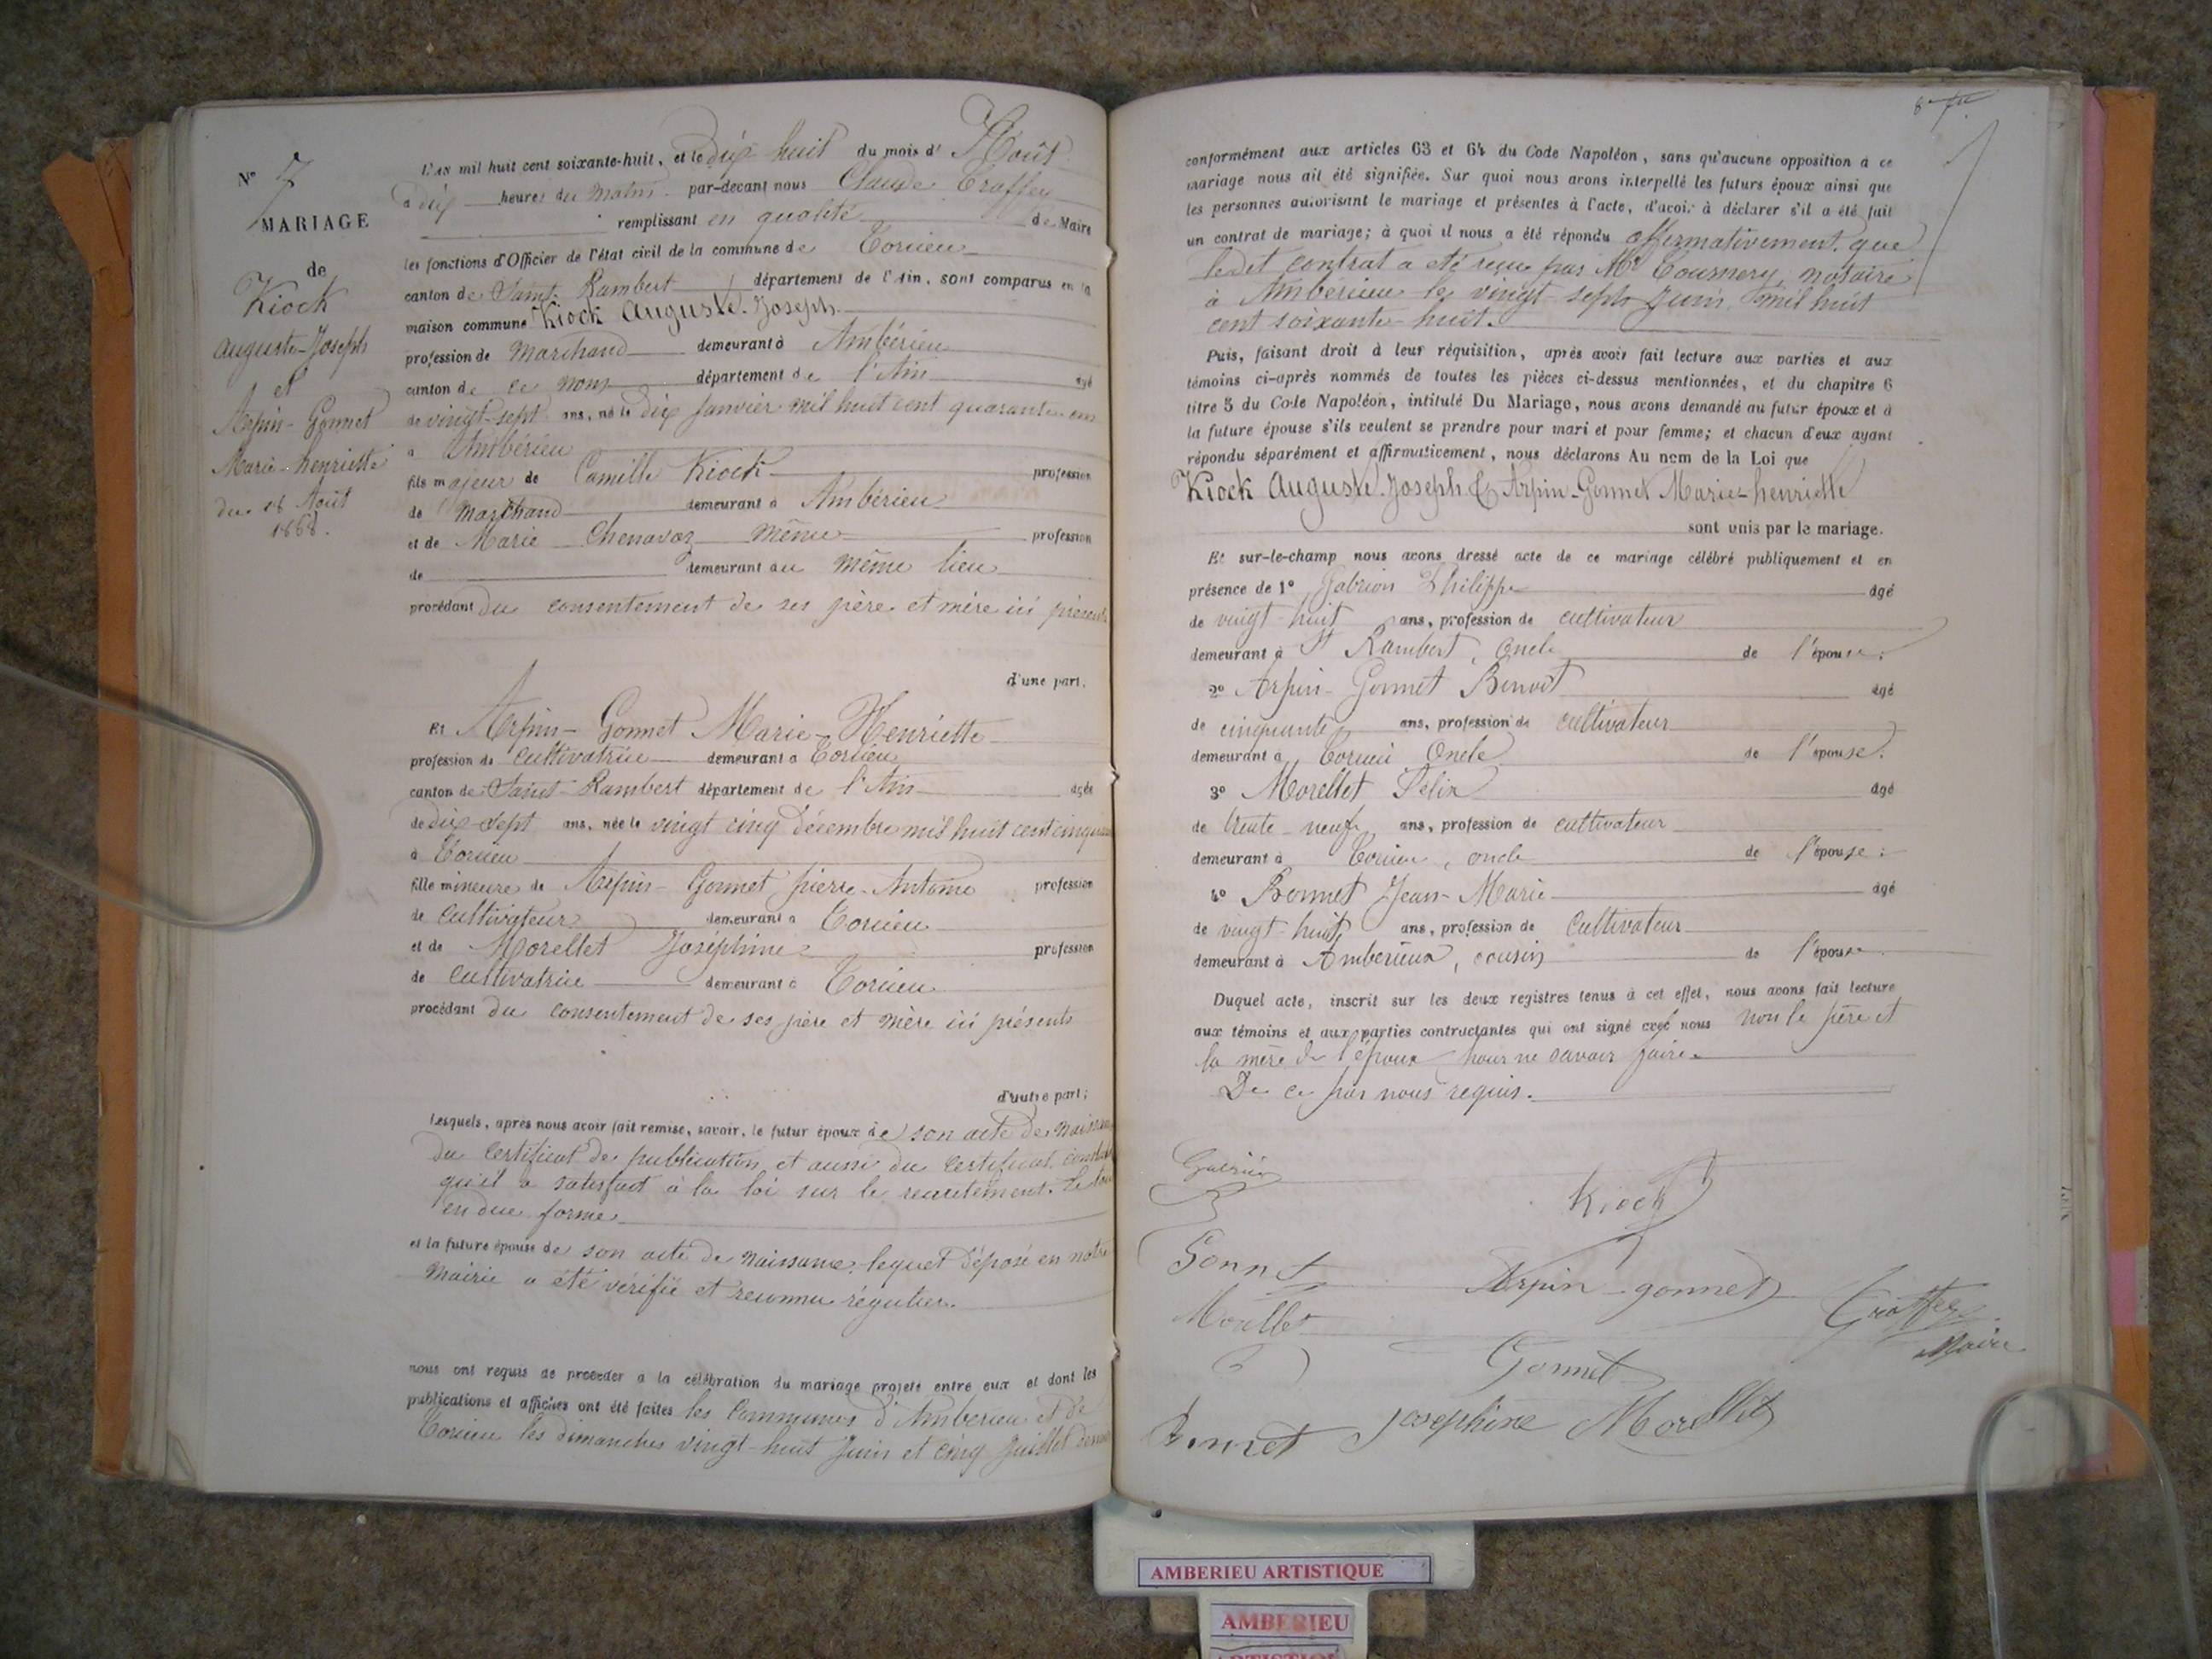 N° 7
MARIAGE
de
Kiock
Auguste-Joseph
et
Arpin-Gonnet
Marie-henriette
du 18 Août
1868.
L'AN mil huit cent soixante-huit, et le dix huit du mois d'Août
à dix heures du matin par-devant nous Claude
remplissant en qualité de Maire
les fonctions d'Officier de l'état civil de la commune de Torcieu
canton de Saint Rambert, département de l'Ain, sont comparus en la
maison commune Kiock Auguste-Joseph
profession de Marchand demeurant à Ambérieu
canton de ce nom département de l'Ain agé
de vingt-sept ans, né le dix Janvier mil huit cent quarante un
à Ambérieu
fils majeur de Camille Kiock profession
de Marchand demeurant à Ambérieu
et de Marie Chenavaz même profession
de demeurant au même lieu
procédant du consentement de ses père et mère ici présents
d'une part.
Et Arpin-Gonnet Marie-Henriette
profession de cultivatrice demeurant à Torcieu
canton de Saint-Rambert département de l'Ain agée
de dix-sept ans, née le vingt cinq décembre mil huit cent cinquante
à Torcieu
fille mineure de Arpin-Gonnet pierre-Antoine profession
de cultivateur demeurant à Torcieu
et de Morellet Joséphine profession
de cultivatrice demeurant à Torcieu
procédant du consentement de ses père et mère ici présents
d'autre part;
Lesquels, après nous avoir fait remise, savoir, le futur époux de son acte de naissance
du certificat de publication et aussi du certificat
qu'il a satisfait à la loi sur le recrutement. Le tout
en due forme
et la future épouse de son acte de naissance lequel déposé en notre
mairie a été vérifié et reconnu régulier.
nous ont requis de proceder à la célébration du mariage projeté entre eux et dont les
publications et affiches ont été faites les communes d'Amberieu et de
Torcieu les dimanches vingt-huit Juin et cinq Juillet dernier
conformément aux articles 63 et 64 du Code Napoléon, sans qu'aucune opposition à ce
mariage nous ait été signifiée. Sur quoi nous avons interpellé les futurs époux ainsi que
les personnes autorisant le mariage et présentes à l'acte, d'avoir à déclarer s'il a été fait
un contrat de mariage; à quoi il nous a été répondu affirmativement, que
ledit contrat a été reçu par Me notaire
à Amberieu le vingt-sept Juin mil huit
cent soixante-huit.
Puis, faisant droit à leur réquisition, après avoir fait lecture aux parties et aux
témoins ci-après nommés de toutes les pièces ci-dessus mentionnées, et du chapitre 6
titre 5 du Code Napoléon, intitulé Du Mariage, nous avons demandé au futur époux et à
la future épouse s'ils veulent se prendre pour mari et pour femme; et chacun d'eux ayant
répondu séparément et affirmativement, nous déclarons Au nom de la Loi que
Kiock Auguste-Joseph & Arpin-Gonnet Marie-henriette
sont unis par le mariage.
Et sur-le-champ nous avons dressé acte de ce mariage célébré publiquement et en
présence de 1° Philippe agé
de vingt-huit ans, profession de cultivateur
demeurant à St Rambert, oncle de l'épouse;
2° Arpin-Gonnet Benoit agé
de cinquante ans, profession de cultivateur
demeurant à Torcieu Oncle de l'épouse.
3° Morellet Félix agé
de trente-neuf ans, profession de cultivateur
demeurant à Torcieu, oncle de l'épouse;
4° Bonnet Jean-Marie agé
de vingt-huit ans, profession de cultivateur
demeurant à Amberieux, cousin de l'épouse
Duquel acte, inscrit sur les deux registres tenus à cet effet, nous avons fait lecture
aux témoins et aux parties contractantes qui ont signé avec nous non le père et
la mère de l'époux pour ne savoir faire.
De ce par nous requis.
Kiock
Gonnet
Arpin-gonnet
Morellet
Maire
Gonnet
Bonnet
Josephine Morellet
AMBERIEU ARTISTIQUE
AMBERIEU
ARTISTIQUE